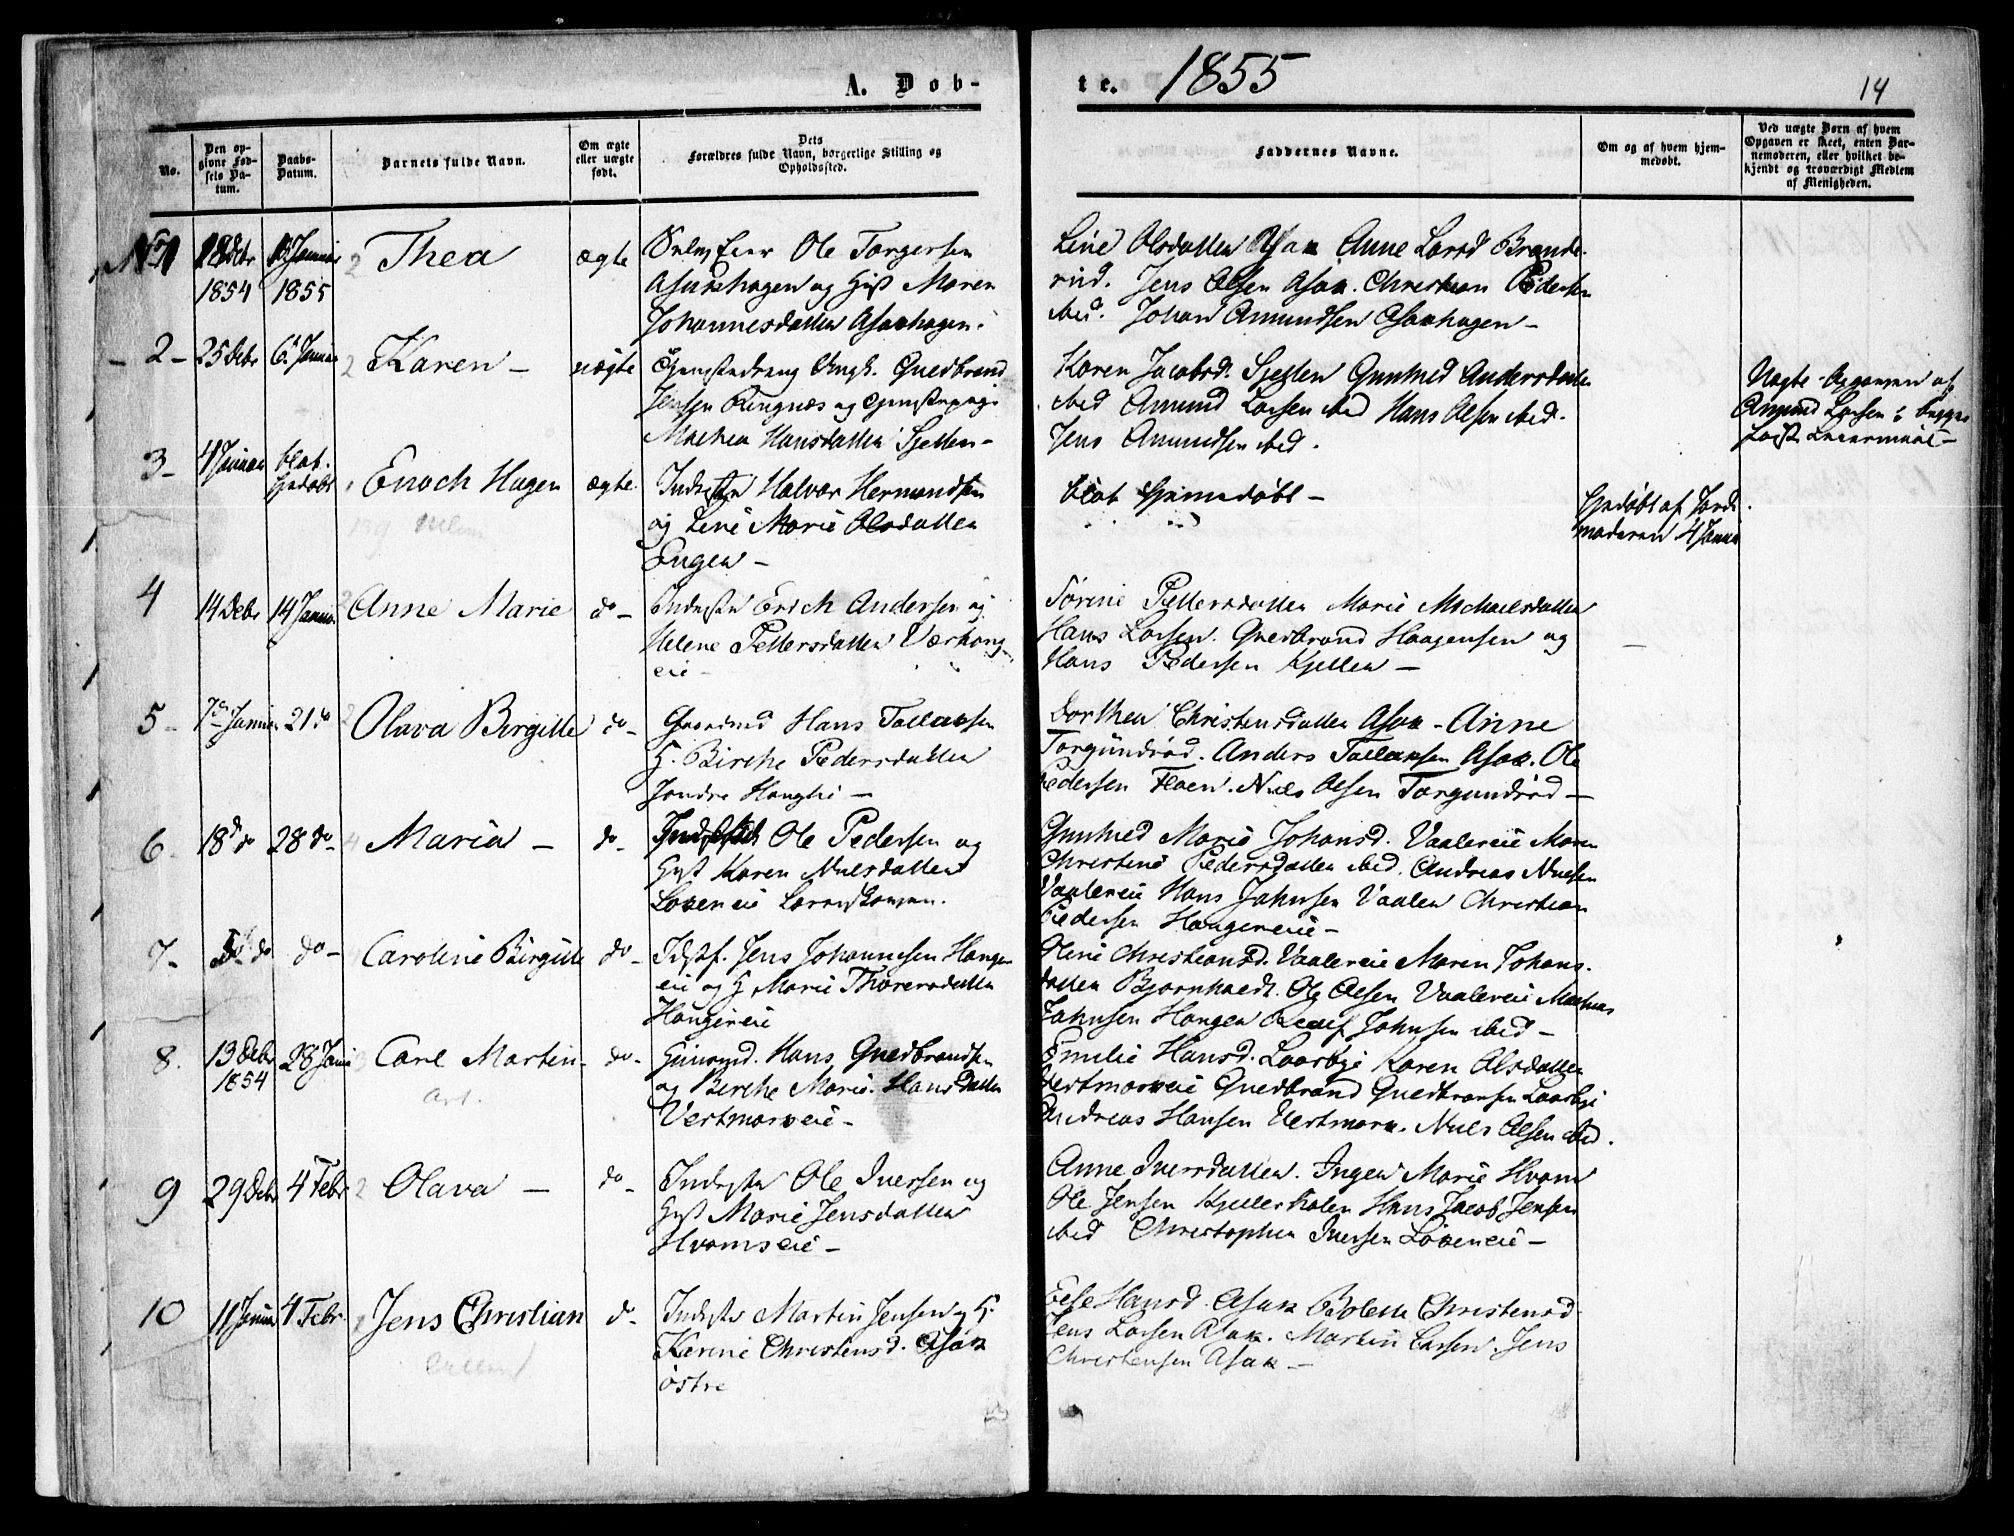 A. Dob-
te. 1855
14
No.
Den op-
givne Fød-
sels Da-
tum.
Daabs-
Datum.
Barnets fulde Navn.
Om ægte
eller uægte
født.
Dets
Forældres fulde Navn, borgerlige Stilling og
Opholdssted.
Faddernes Navne.
Om og af hvem hjem-
medøbt.
Ved uægte Børn af hvem
Opgaven er skeet, enten Bar-
nemoderen, eller hvilket be-
kjendt og troværdigt Medlem
af Menigheden.
No 1
18 Debr
1854
Januar
1855
Thea
ægte
Ole Torgersen
og Maren
Johannesdatten Asakhagen.
Line Olsdatten Asak Anne Larsd
Jens Olsen Asak. Christian Pedersen
ibid. Johan Amundsen Asakhagen -
- 2 -
25 Debr
6 Januar
Karen -
uægte
Ungk. Guedbrand
Jensen Ringnæs og
Mathea Hansdatten Sjetten -
Karen Jacobsd. Sjetten Gunhild Andersdatten
ibid Amund Larsen ibid Hans Olsen ibid.
Jens Amundsen ibid.
Uægte - Opgaven af
Amund Larsen
3 -
4 Januar
blot.
hjdøbt
Enoch Hagen
ægte
Halvor Hermandsen
og Line Marie Olsdatten
Engen -
blot Hjemmedøbt -
Hjdøbt af Jord-
moderen 4 Janu
4
14 Debr
14 Januar
Anne Marie
do -
Erich Andersen og
Helene Pettersdatten
eie -
Sørine Pettersdatten Marie Michaelsdatten
Hans Larsen. Guedbrand Haagensen og
Hans Pedersen Kjetten -
5 -
7de Januar
21 do
Olava Birgitte
do -
Gaardmd Hans Tollaksen
H. Birthe Pedersdatten
Søndre Haugli -
Dorthea Christensdatten Asak - Anne
Torgundrød. Anders Tollaksen Asak. Ole
Pedersen Floen. Niels Olsen Torgundrød -
6 -
18 do
28 do -
Maria -
do -
Ole Pedersen og
Hust Karen Nielsdatten
Gunhild Marie Johansd. Vaalereie Maren
Christine Pedersdatten ibid. Andreas Nielsen
Vaalereie Hans Johnsen Vaalen Christian
Pedersen Haugereie -
7 -
do
do -
Caroline Birgitte
do -
Idstf. Jens Johannesen Hauger
eie og H Marie Thorersdatten
Haugereie
Oline Christiansd. Vaalereie Maren Johans-
datten Bjørnholdt. Ole Olsen Vaalereie Mathias
Johnsen Haugen Johnsen ibid -
8.
13 Debr
1854
28 Janu
Carl Martin -
do -
Hans Guedbrandsen
og Birthe Marie Hansdatten
Vestmorkeie -
Emilie Hansd. Laasbye Karen Olsdatten
Vestmorkeie Guedbrand Guedbransen Laasbye
Andreas Hansen Vestmork. Niels Olsen ibid.
9
29 Debr
4 Febr
Olava -
do -
Ole Iversen og
Hust Marie Jensdatten
Hvamseie -
Anne Iversdatten. Ingen Marie Hvam
Ole Jensen Hans Jacob Jensen
ibid Christopher Iversen
10
11 Janua
4 Febr
Jens Christian
do -
Martin Jensen og H.
Karine Christensd. Asak
østre
Hansd. Asak Bolette Christensd
Jens Larsen Asak. Martin Larsen. Jens
Christensen Asak -